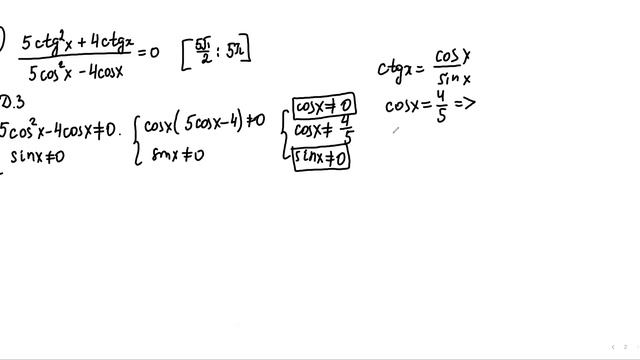 ) (5ctg²x + 4ctgx)/(5cos²x - 4cosx) = 0 [5π/2 ; 5π]
О.З
5cos²x - 4cosx ≠ 0.
sinx ≠ 0
{ cosx(5cosx - 4) ≠ 0
sinx ≠ 0
{ cosx ≠ 0
cosx ≠ 4/5
sinx ≠ 0
ctgx = cosx/sinx
cosx = 4/5 =>